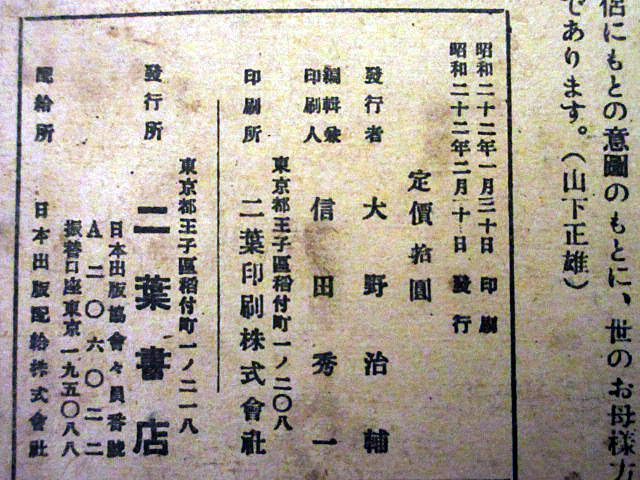 侶にもとの意圖のもとに、世のお母樣方
であります。(山下正雄)
昭和二十二年一月三十日 印刷
昭和二十二年二月十日 發行
定價 拾圓
發行者 大野治輔
編輯兼印刷人 信田秀一
東京都王子區稻付町一ノ二〇八
印刷所 二葉印刷株式會社
東京都王子區稻付町一ノ二一八
發行所 二葉書店
日本出版協會々員番號
A二〇六〇二二
振替口座東京一九五〇八八
配給所 日本出版配給株式會社